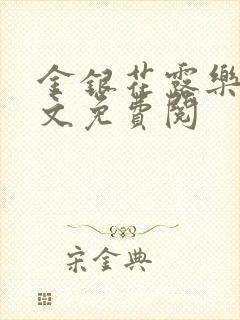 金銀花露樂
文免費閱
宋金典